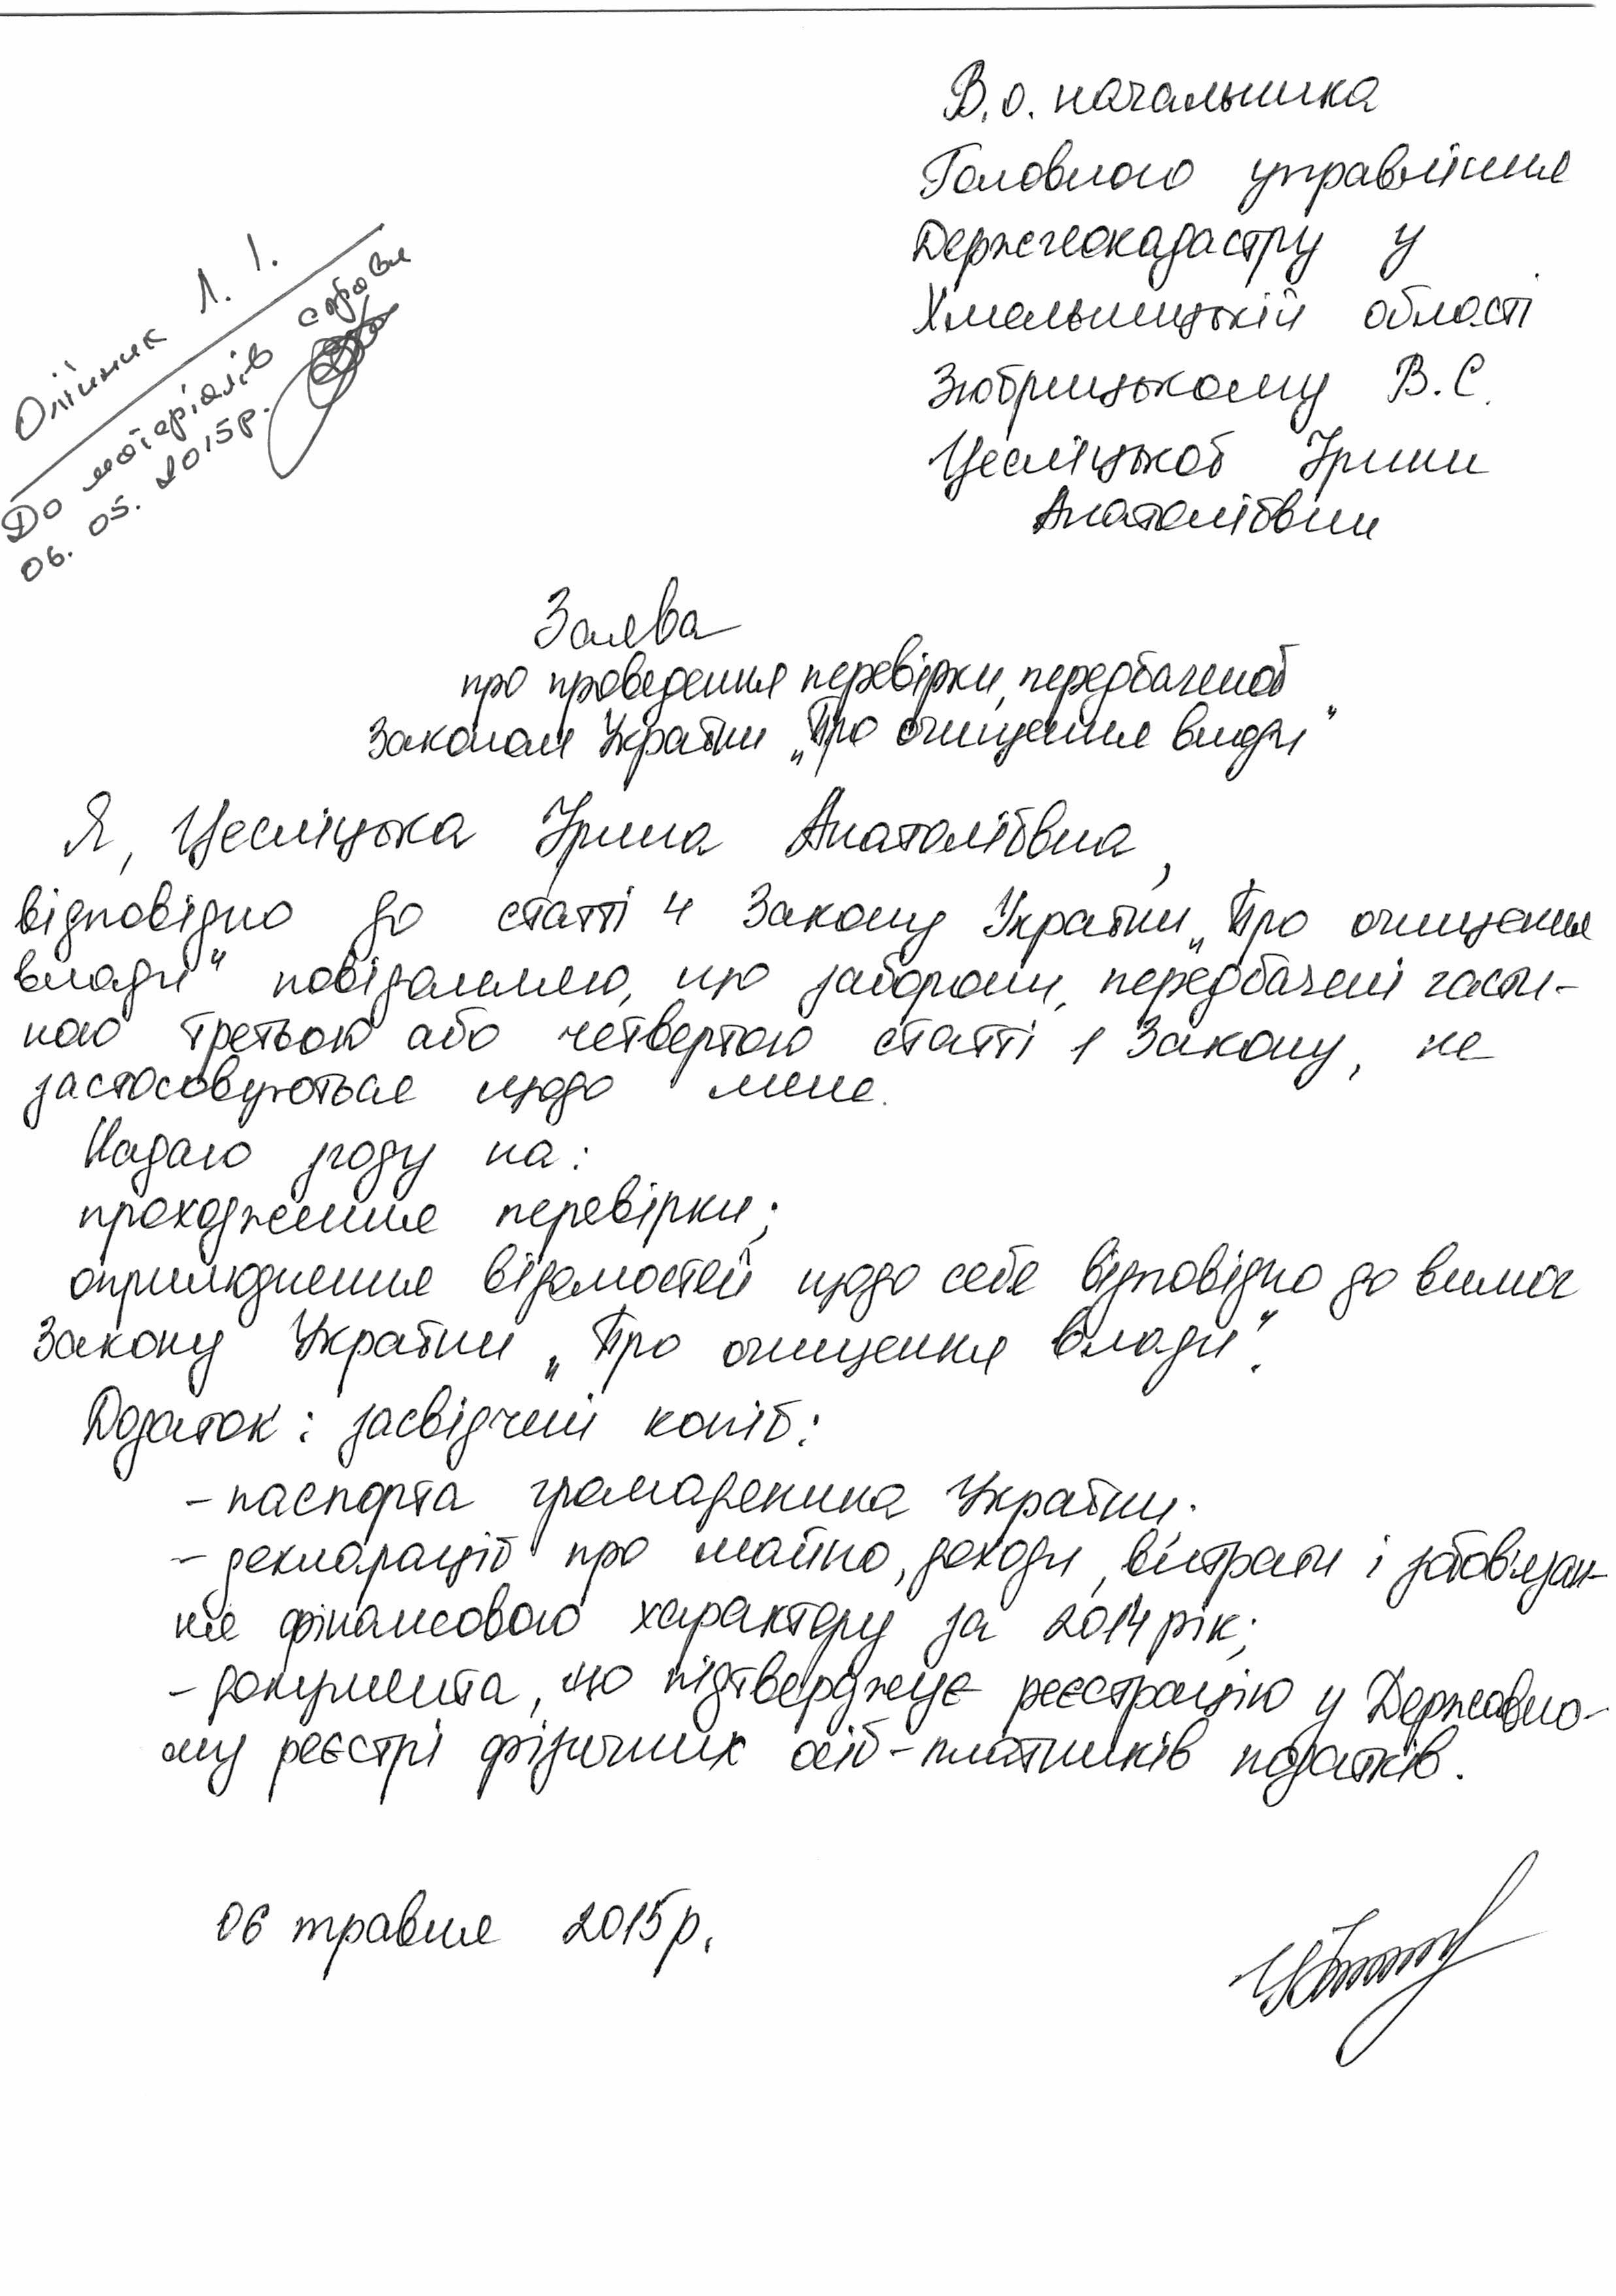 В.о. начальника
Головного управління
Держгеокадастру у
Хмельницькій області
Зюбрицькому В.С.
Цесліцької Ірини
Анатоліївни
Олійник Л. І.
До матеріалів справи
06. 05. 2015р.
Заява
про проведення перевірки, передбаченої
Законом України „Про очищення влади"
Я, Цесліцька Ірина Анатоліївна,
відповідно до статті 4 Закону України „Про очищення
влади" повідомляю, що заборони, передбачені части-
ною третьою або четвертою статті 1 Закону, не
застосовуються щодо мене.
Надаю згоду на:
проходження перевірки;
оприлюднення відомостей щодо себе відповідно до вимог
Закону України „Про очищення влади".
Додаток: засвідчені копії:
- паспорта громадянина України.
- декларації про майно, доходи, витрати і зобов'язан-
ня фінансового характеру за 2014 рік;
- документа, що підтверджує реєстрацію у Державно-
му реєстрі фізичних осіб-платників податків.
06 травня 2015р.